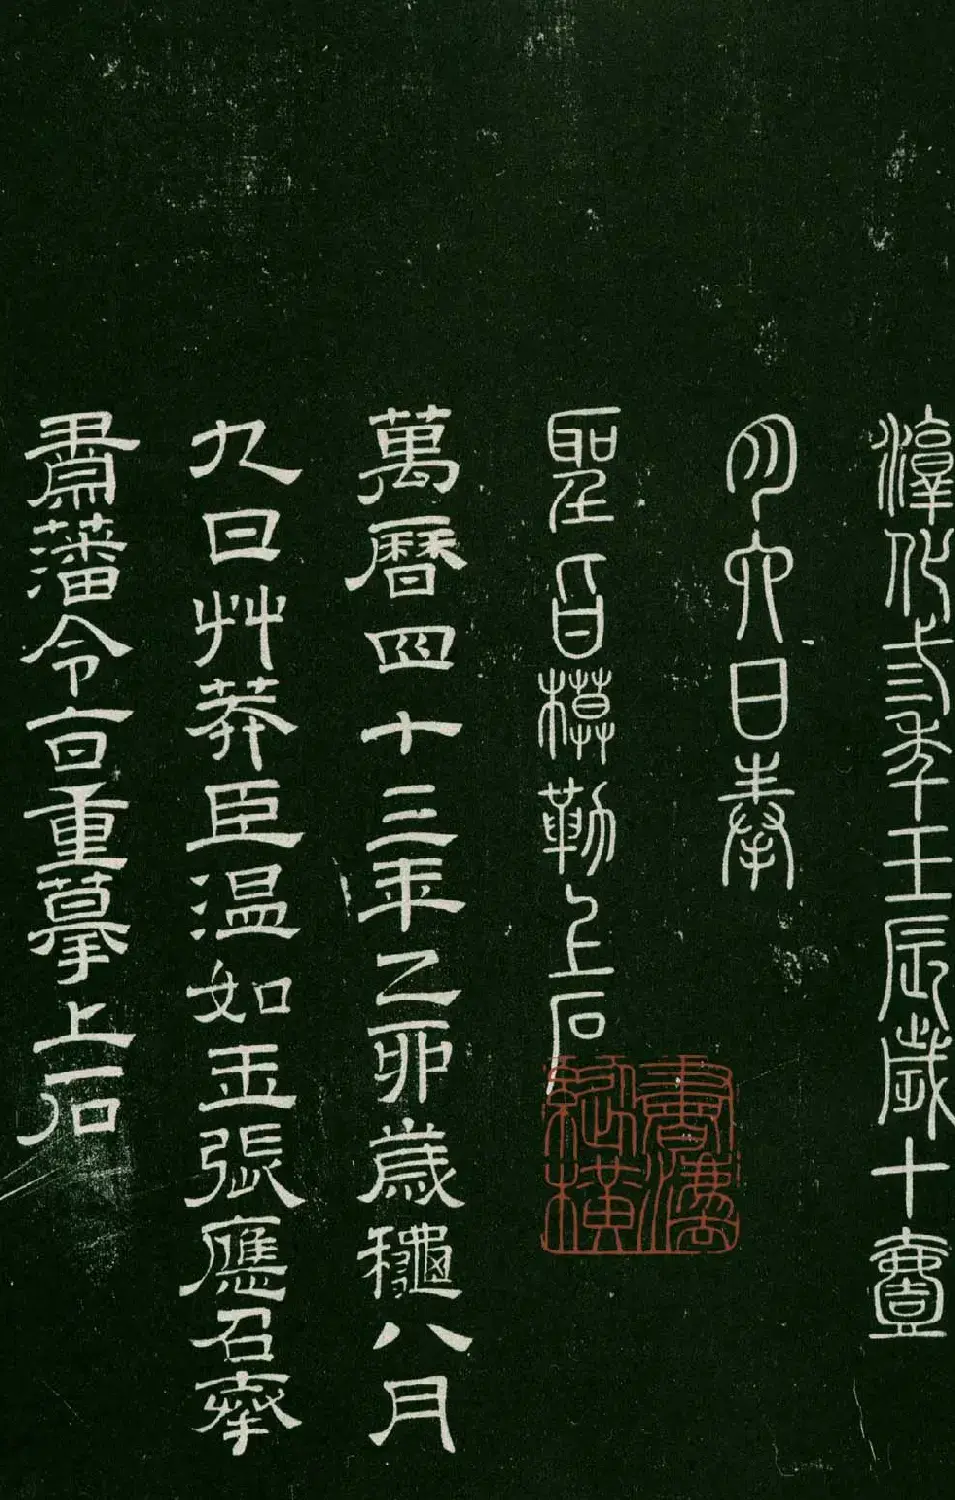 淳化弎年壬辰歲十壹
月六日奉
聖旨模勒上石
萬曆四十三年乙卯歲龝八月
九日艸莽臣溫如玉張應召奉
肅藩令旨重摹上石
書灋
縱橫